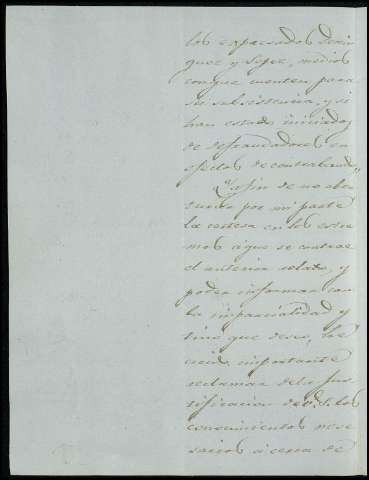 los expresados Domin
guez y Lopez, medios
con que cuenten para
su subsistencia, y si
han estado iniciados
de defraudadores en
efectos de contraband
Y á fin de no aben
turar por mi parte
la certeza en los estre
mos á que se contrae
el anterior relato, y
poder informar con
la imparcialidad y
tino que deseo, he
creido importante
reclamar de la Jus
tificacion de V. S. los
conocimientos nece
sarios acerca de